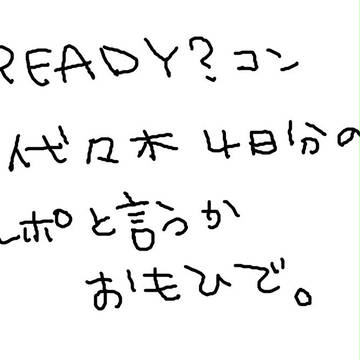 READY?コン
代々木4日分の
レポと言うか
おもひで。